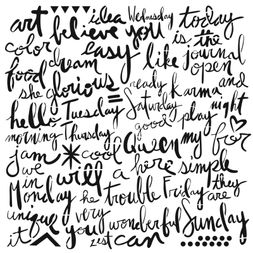 art idea Wednesday today
believe you is the
color easy like journal
food dream open
she glorious ready karma and
hello Tuesday Saturday night
morning Thursday good play
jam cool Queen my for
we will a here simple
in
Monday he trouble Friday they are
unique very wonderful Sunday
it you can